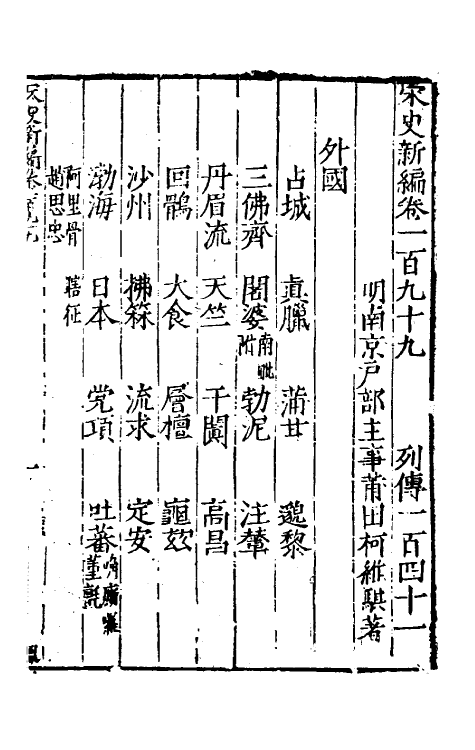 宋史新編卷一百九十九　列傳一百四十一
明南京戶部主事莆田柯維騏著
外國
占城　真臘　蒲甘　邈黎
三佛齊　闍婆南毗附　勃泥　注輦
丹眉流　天竺　于闐　高昌
回鶻　大食　層檀　龜玆
沙州　拂菻　流求　定安
渤海　日本　党項　吐蕃唃廝囉董氊
阿里骨　瞎征
趙思忠